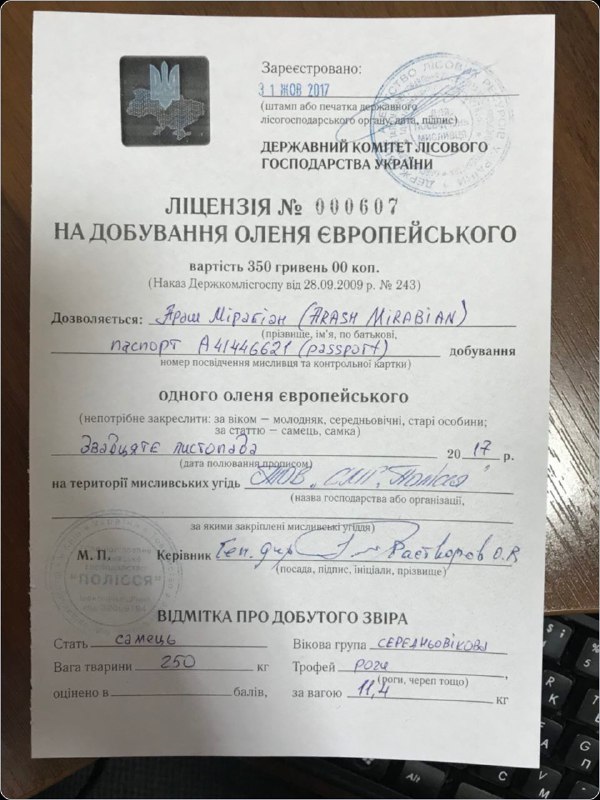 Зареєстровано:
31 ЖОВ 2017
(штамп або печатка державного
лісогосподарського органу, дата, підпис)
ДЕРЖАВНИЙ КОМІТЕТ ЛІСОВОГО
ГОСПОДАРСТВА УКРАЇНИ
ЛІЦЕНЗІЯ № 000607
НА ДОБУВАННЯ ОЛЕНЯ ЄВРОПЕЙСЬКОГО
вартість 350 гривень 00 коп.
(Наказ Держкомлісгоспу від 28.09.2009 р. № 243)
Дозволяється: Араш Мірабіан (ARASH MIRABIAN)
(прізвище, ім'я, по батькові,
паспорт A41446621 (passport) добування
номер посвідчення мисливця та контрольної картки)
одного оленя європейського
(непотрібне закреслити: за віком — молодняк, середньовічні, старі особини;
за статтю — самець, самка)
двадцяте листопада 2017 р.
(дата полювання прописом)
на території мисливських угідь ТОВ "СМГ "Полісся"
(назва господарства або організації,
за якими закріплені мисливські угіддя)
М. П. Керівник Ген. дир Растворов О.В
(посада, підпис, ініціали, прізвище)
"ПОЛІССЯ"
ВІДМІТКА ПРО ДОБУТОГО ЗВІРА
Стать самець Вікова група СЕРЕДНЬОВІКОВА
Вага тварини 250 кг Трофей роги,
(роги, череп тощо)
оцінено в балів, за вагою 11,4 кг